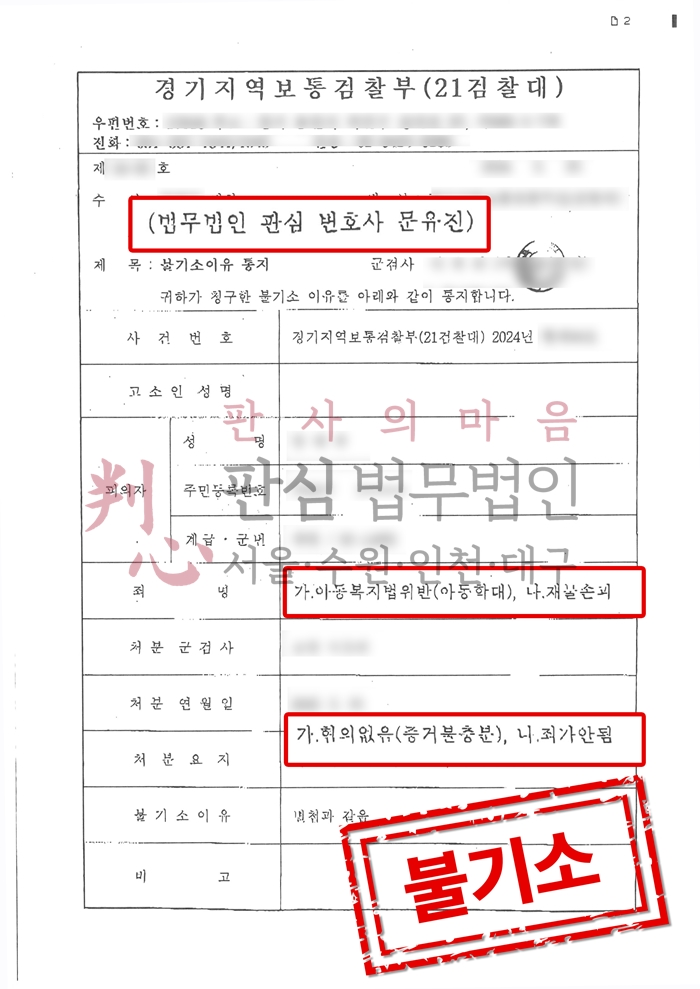 2
경기지역보통검찰부(21검찰대)
우편번호 :
전화 :
제 호
수
(법무법인 판심 변호사 문유진)
제 목 : 불기소이유 통지 군검사
귀하가 청구한 불기소 이유를 아래와 같이 통지합니다.
사 건 번 호 경기지역보통검찰부(21검찰대) 2024년
고 소 인 성 명
판사의마음
피의자
성 명
주민등록번호
判心 판심 법무법인
계급·군번
서울·수원·인천·대구
죄 명 가.아동복지법위반(아동학대), 나.재물손괴
처 분 군 검 사
처 분 연 월 일
처 분 요 지 가.혐의없음(증거불충분), 나.죄가안됨
불 기 소 이 유 별첨과 같음
비 고
불기소